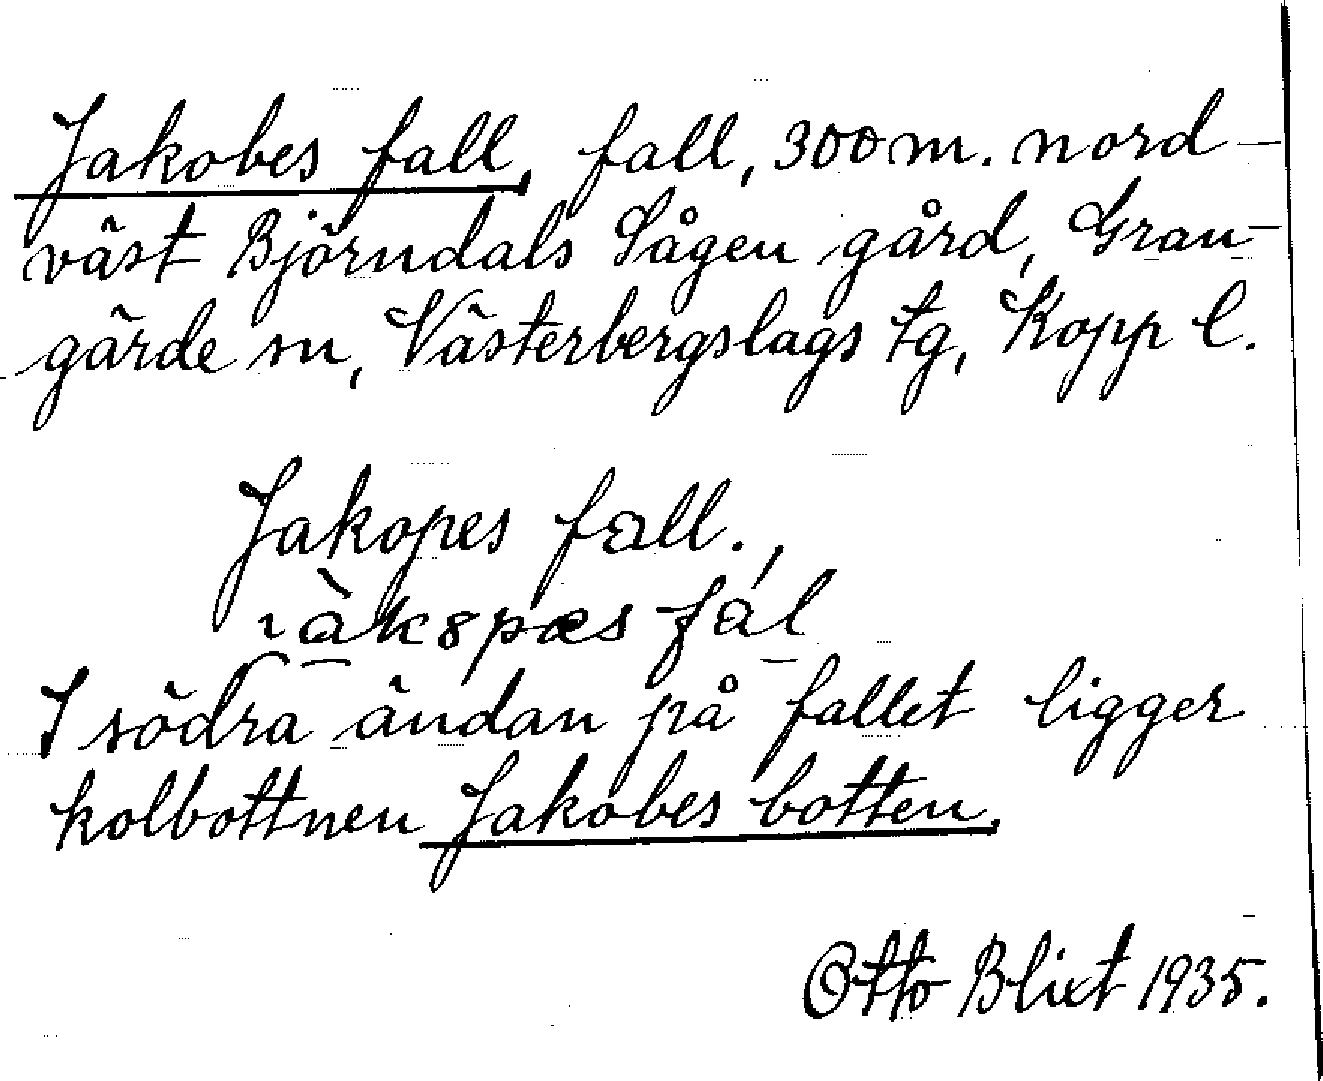 Jakobes fall, fall, 300 m. nord-
väst Björndals Sågen gård, Gran-
gärde sn, Västerbergslags tg, Kopp l.
Jakopes fall.,
ɩàk8pæs fál
I södra ändan på fallet ligger
kolbottnen Jakobes botten.
Otto Blixt 1935.